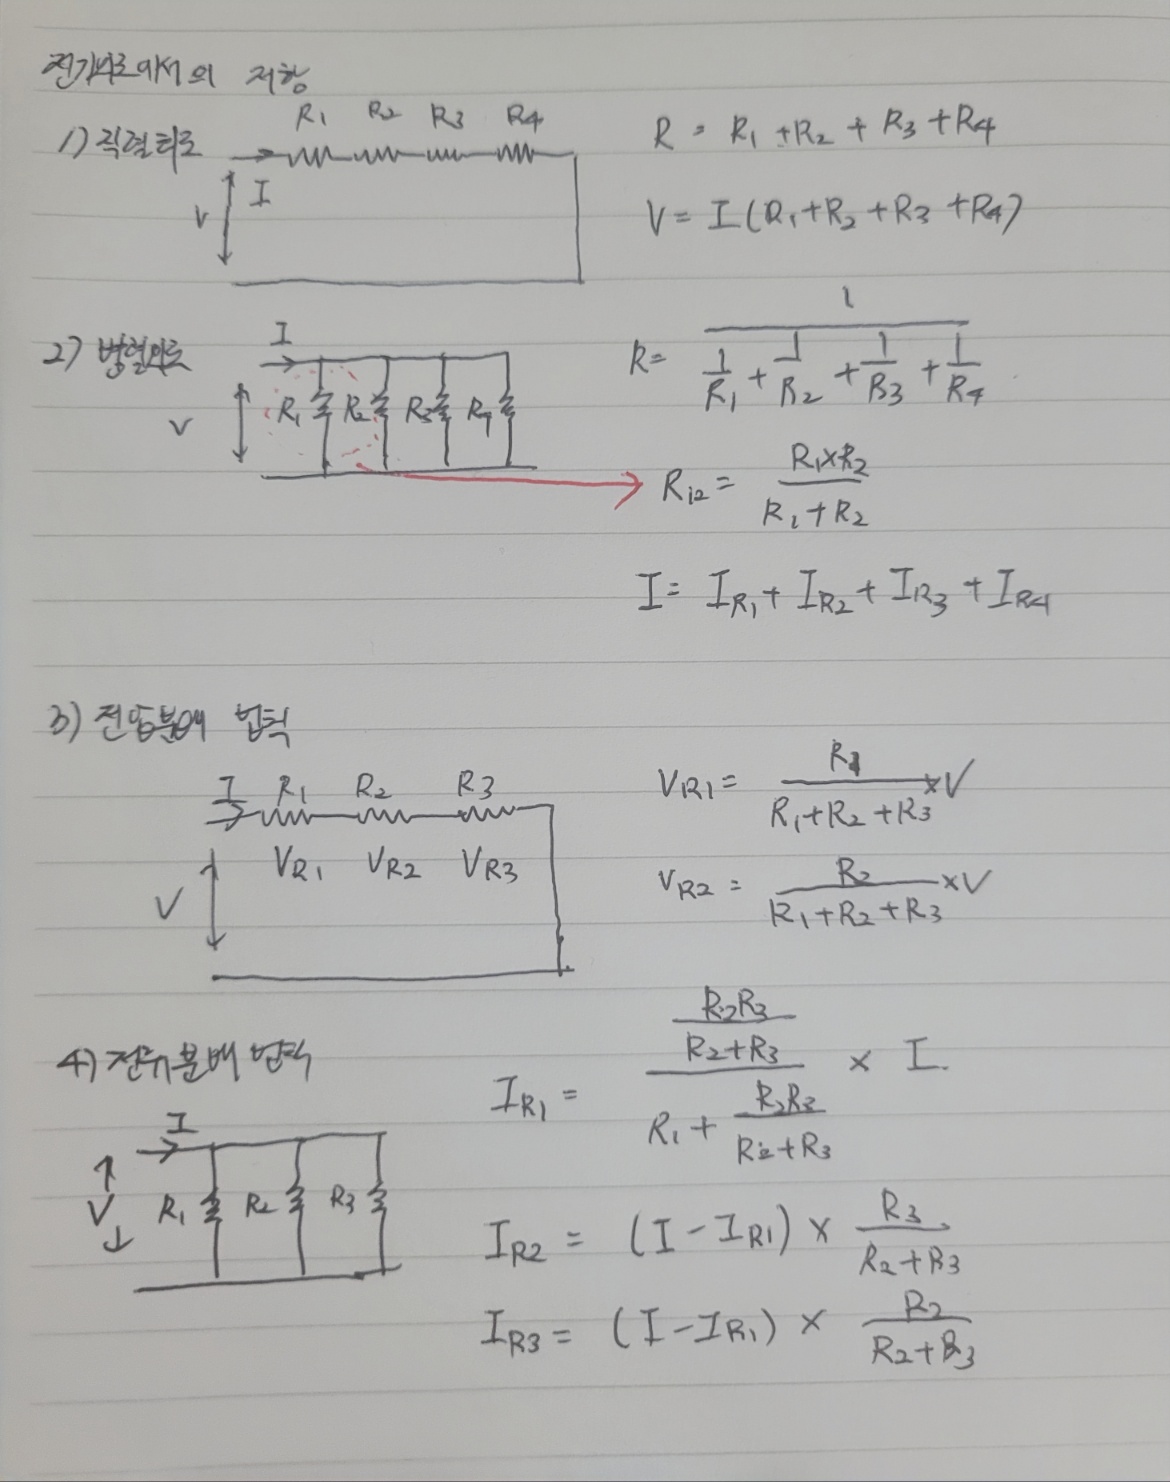 전기회로에서의 저항
1) 직렬회로
R1 R2 R3 R4
I
V
R = R1 + R2 + R3 + R4
V = I (R1 + R2 + R3 + R4)
2) 병렬회로
I
V
R1 R2 R3 R4
R = 1 / (1/R1 + 1/R2 + 1/R3 + 1/R4)
R12 = (R1 × R2) / (R1 + R2)
I = IR1 + IR2 + IR3 + IR4
3) 전압분배 법칙
I R1 R2 R3
VR1 VR2 VR3
V
VR1 = R1 / (R1 + R2 + R3) × V
VR2 = R2 / (R1 + R2 + R3) × V
4) 전류분배 법칙
I
V
R1 R2 R3
IR1 = (R2R3 / (R2 + R3)) / (R1 + R2R3 / (R2 + R3)) × I
IR2 = (I - IR1) × R3 / (R2 + R3)
IR3 = (I - IR1) × R2 / (R2 + R3)